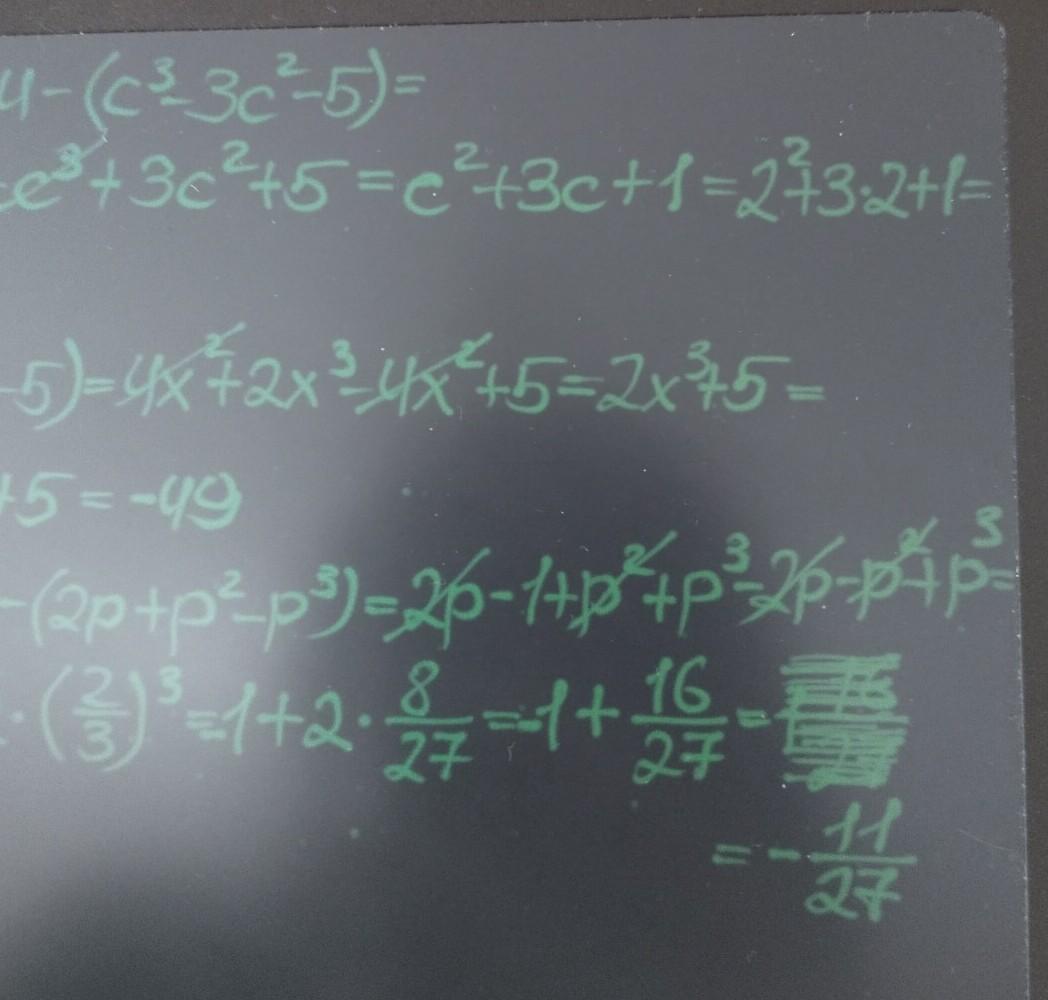 4-(c³-3c²-5)=
c³+3c²+5=c²+3c+1=2²+3·2+1=
-5)=4x²+2x³-4x²+5=2x³+5=
+5=-49
-(2p+p²-p³)=2p-1+p²+p³-2p-p²+p³=
·(2/3)³=-1+2·8/27=-1+16/27=
=-11/27